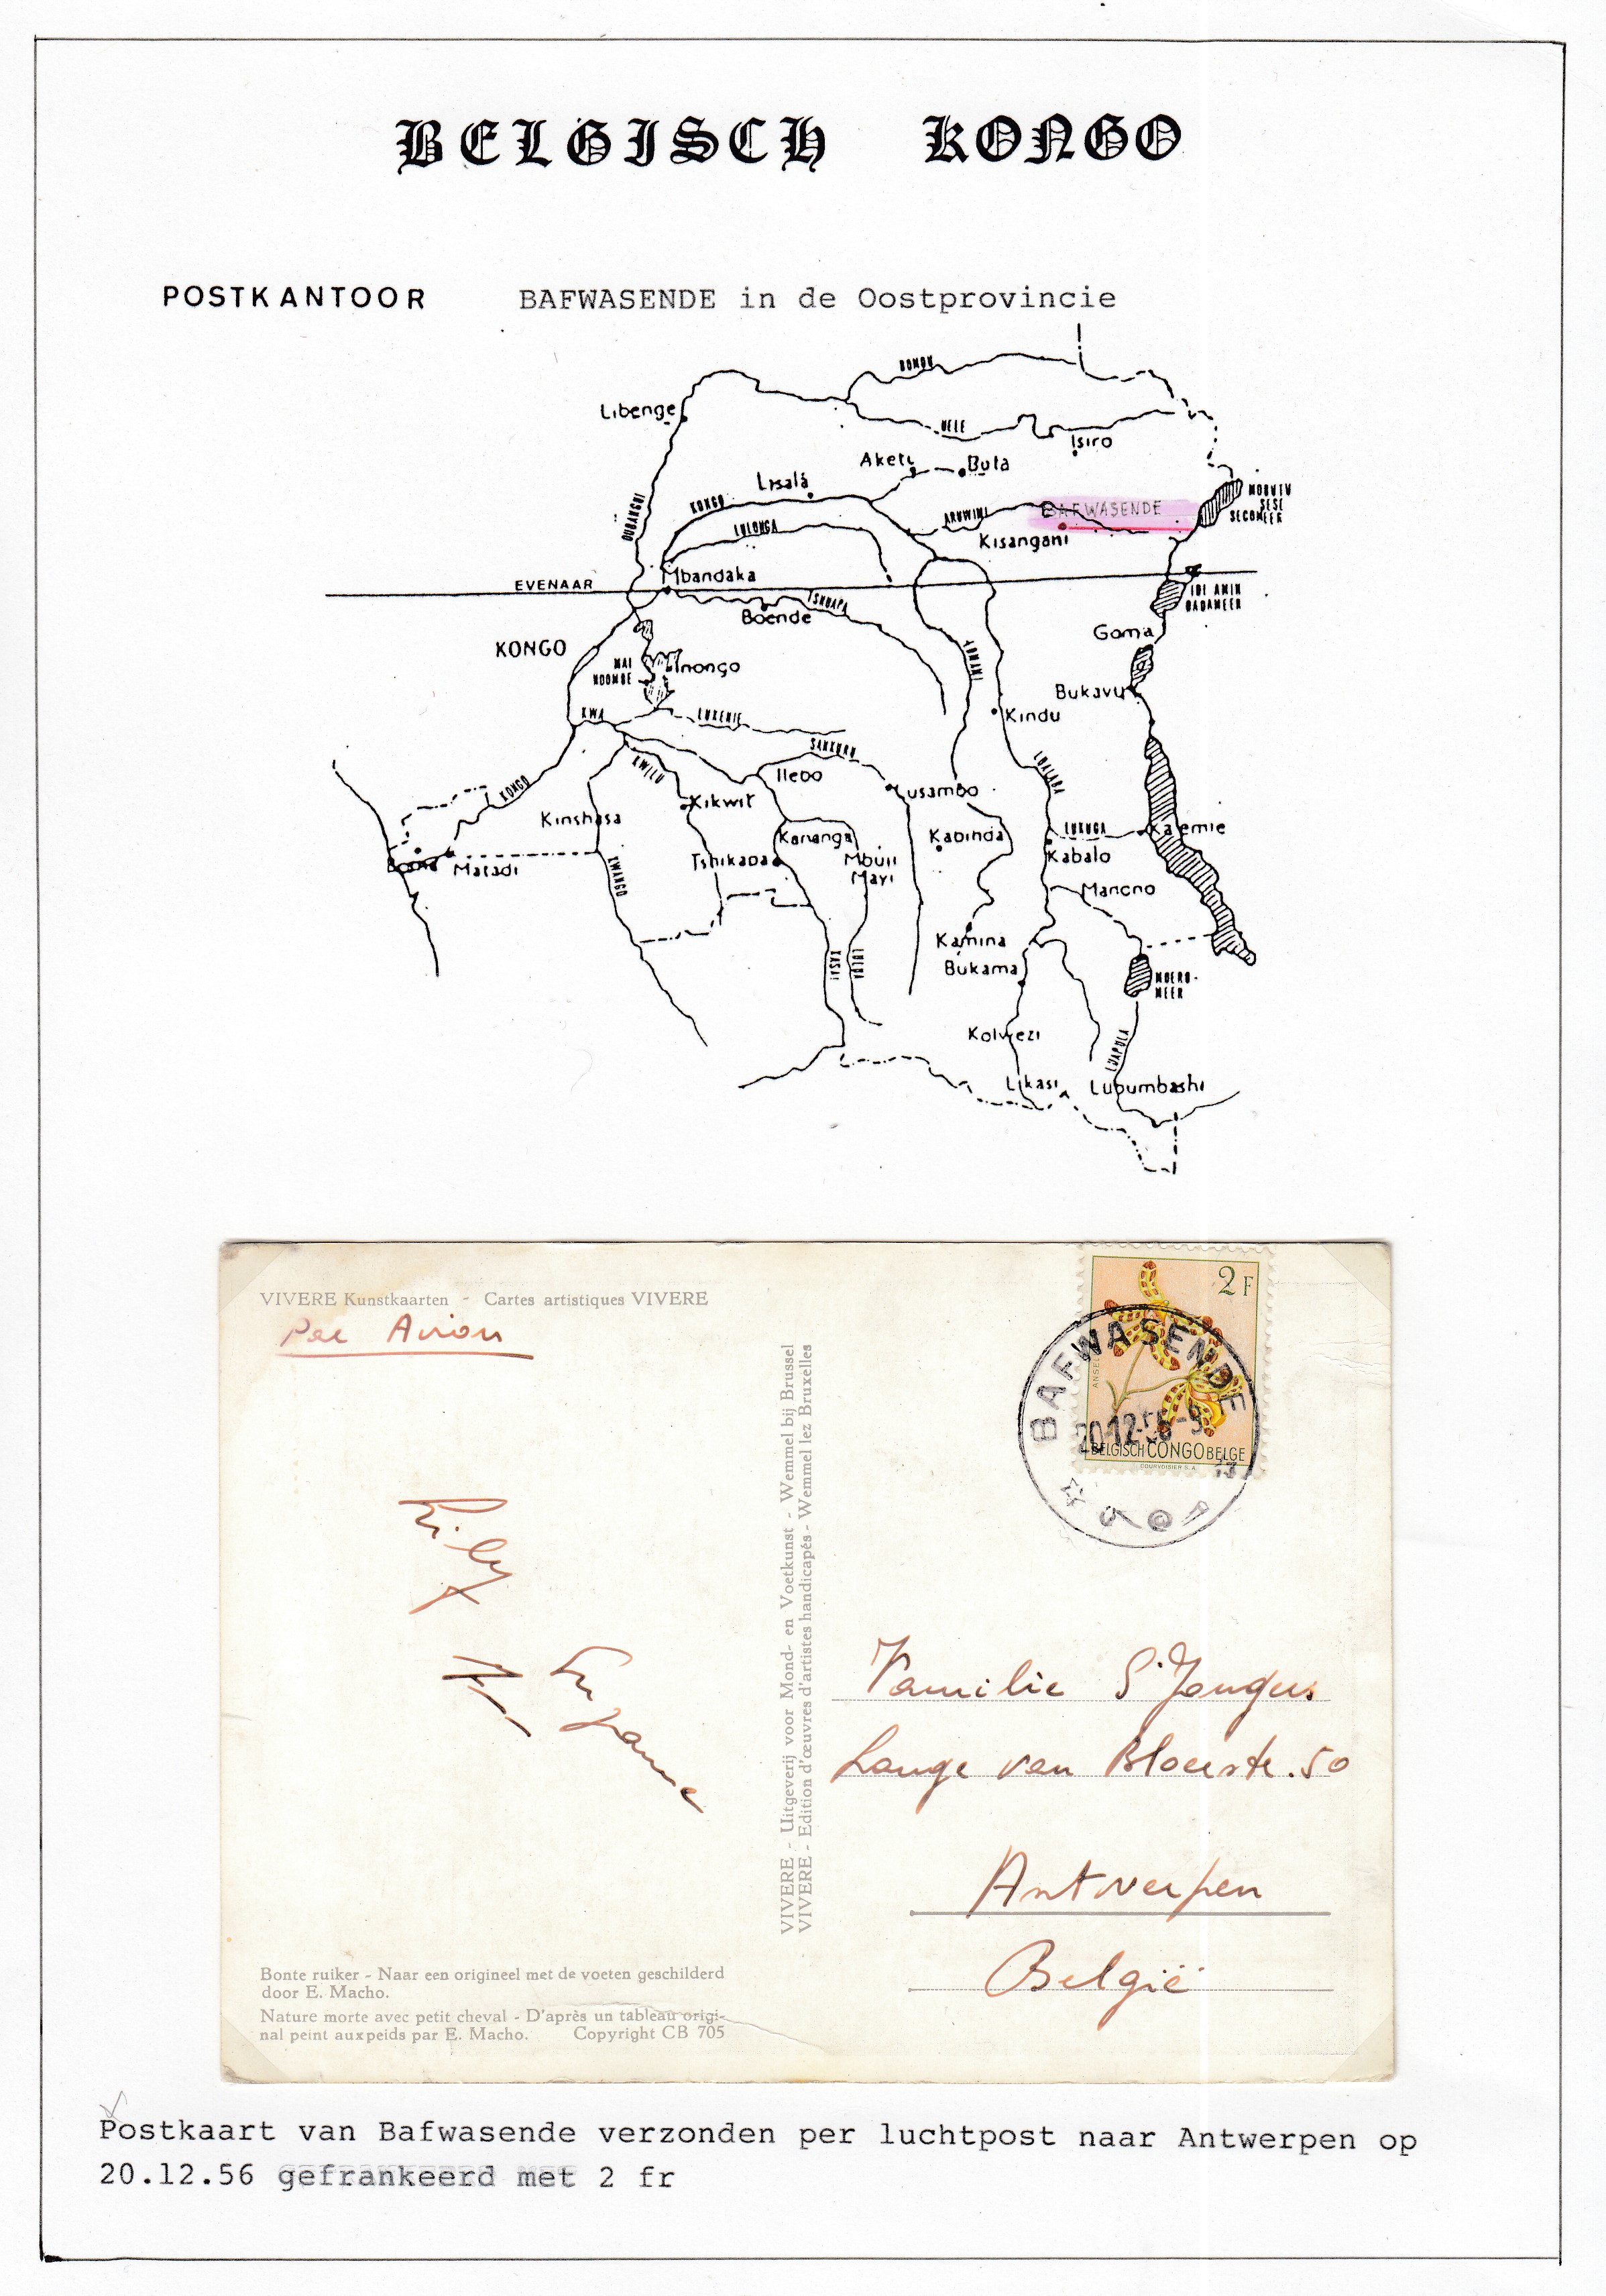 BELGISCH KONGO
POSTKANTOOR BAFWASENDE in de Oostprovincie
BOMU
Libenge
UELE
Isiro
Aketi
Buta
Lisala
MOBUTU
SESE
SECOMEER
OUBANGUI
KONGO
ARUWIMI
BAFWASENDE
LULONGA
Kisangani
EVENAAR
Mbandaka
TSHUAPA
IDI AMIN
DADAMEER
Boende
Goma
KONGO
MAI
NDOMBE
Inongo
LOMAMI
Bukavu
KWA
LUKENIE
Kindu
SANKURU
KWILU
Ilebo
LUALABA
KONGO
Kikwit
Lusambo
Kinshasa
Kananga
Kabinda
LUKUGA
Kalemie
Boma
Matadi
KWANGO
Tshikapa
Mbuji
Mayi
Kabalo
Manono
KASAI
LULUA
Kamina
Bukama
MOERO-
MEER
Kolwezi
LUAPULA
Likasi
Lubumbashi
VIVERE Kunstkaarten - Cartes artistiques VIVERE
Par Avion
2 F
BELGISCH CONGO BELGE
COURVOISIER S.A.
BAFWASENDE
20-12-56-9
VIVERE - Uitgeverij voor Mond- en Voetkunst - Wemmel bij Brussel
VIVERE - Edition d'œuvres d'artistes handicapés - Wemmel lez Bruxelles
Familie S'Jongers
Lange van Bloerstr. 50
Antwerpen
België
Bonte ruiker - Naar een origineel met de voeten geschilderd
door E. Macho.
Nature morte avec petit cheval - D'après un tableau origi-
nal peint aux peids par E. Macho. Copyright CB 705
Postkaart van Bafwasende verzonden per luchtpost naar Antwerpen op
20.12.56 gefrankeerd met 2 fr